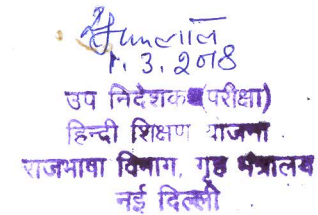 1.3.2018
उप निदेशक (परीक्षा)
हिन्दी शिक्षण योजना
राजभाषा विभाग, गृह मंत्रालय
नई दिल्ली